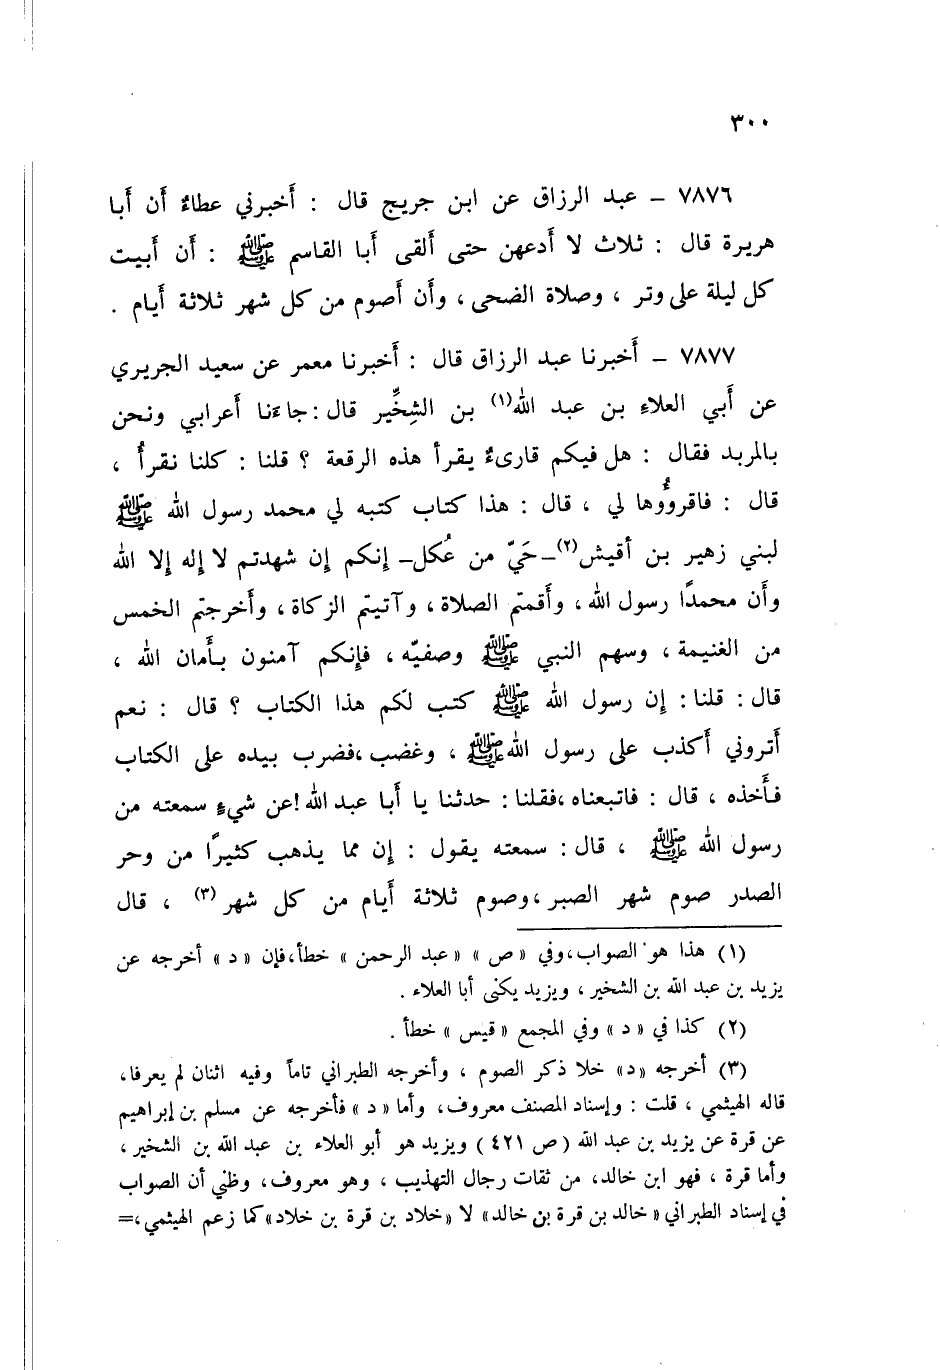 ٣٠٠
٧٨٧٦ – عبد الرزاق عن ابن جريج قال : أخبرني عطاءٌ أن أبا
هريرة قال : ثلاث لا أدعهن حتى ألقى أبا القاسم ﷺ : أن أبيت
كل ليلة على وتر ، وصلاة الضحى ، وأن أصوم من كل شهر ثلاثة أيام .
٧٨٧٧ – أخبرنا عبد الرزاق قال : أخبرنا معمر عن سعيد الجريري
عن أبي العلاءِ بن عبد الله(١) بن الشِخِّير قال : جاءَنا أعرابي ونحن
بالمربد فقال : هل فيكم قارىءٌ يقرأ هذه الرقعة ؟ قلنا : كلنا نقرأُ ،
قال : فاقروُّوها لي ، قال : هذا كتاب كتبه لي محمد رسول الله ﷺ
لبني زهير بن أقيش(٢) – حَيّ من عُكل – إنكم إن شهدتم لا إله إلا الله
وأن محمدًا رسول الله ، وأقمتم الصلاة ، وآتيتم الزكاة ، وأخرجتم الخمس
من الغنيمة ، وسهم النبي ﷺ وصفيّه ، فإنكم آمنون بأمان الله ،
قال : قلنا : إن رسول الله ﷺ كتب لكم هذا الكتاب ؟ قال : نعم
أتروني أكذب على رسول الله ﷺ ، وغضب ، فضرب بيده على الكتاب
فأخذه ، قال : فاتبعناه ، فقلنا : حدثنا يا أبا عبد الله ! عن شيءٍ سمعته من
رسول الله ﷺ ، قال : سمعته يقول : إن مما يذهب كثيرًا من وحر
الصدر صوم شهر الصبر ، وصوم ثلاثة أيام من كل شهر (٣) ، قال
(١) هذا هو الصواب ، وفي « ص » « عبد الرحمن » خطأ ، فإن « د » أخرجه عن
يزيد بن عبد الله بن الشخير ، ويزيد يكنى أبا العلاء .
(٢) كذا في « د » وفي المجمع « قيس » خطأ .
(٣) أخرجه « د » خلا ذكر الصوم ، وأخرجه الطبراني تاماً وفيه اثنان لم يعرفا ،
قاله الهيثمي ، قلت : وإسناد المصنف معروف ، وأما « د » فأخرجه عن مسلم بن إبراهيم
عن قرة عن يزيد بن عبد الله ( ص ٤٢١ ) ويزيد هو أبو العلاء بن عبد الله بن الشخير ،
وأما قرة ، فهو ابن خالد ، من ثقات رجال التهذيب ، وهو معروف ، وظني أن الصواب
في إسناد الطبراني « خالد بن قرة بن خالد » لا « خلاد بن قرة بن خلاد » كما زعم الهيثمي ، =